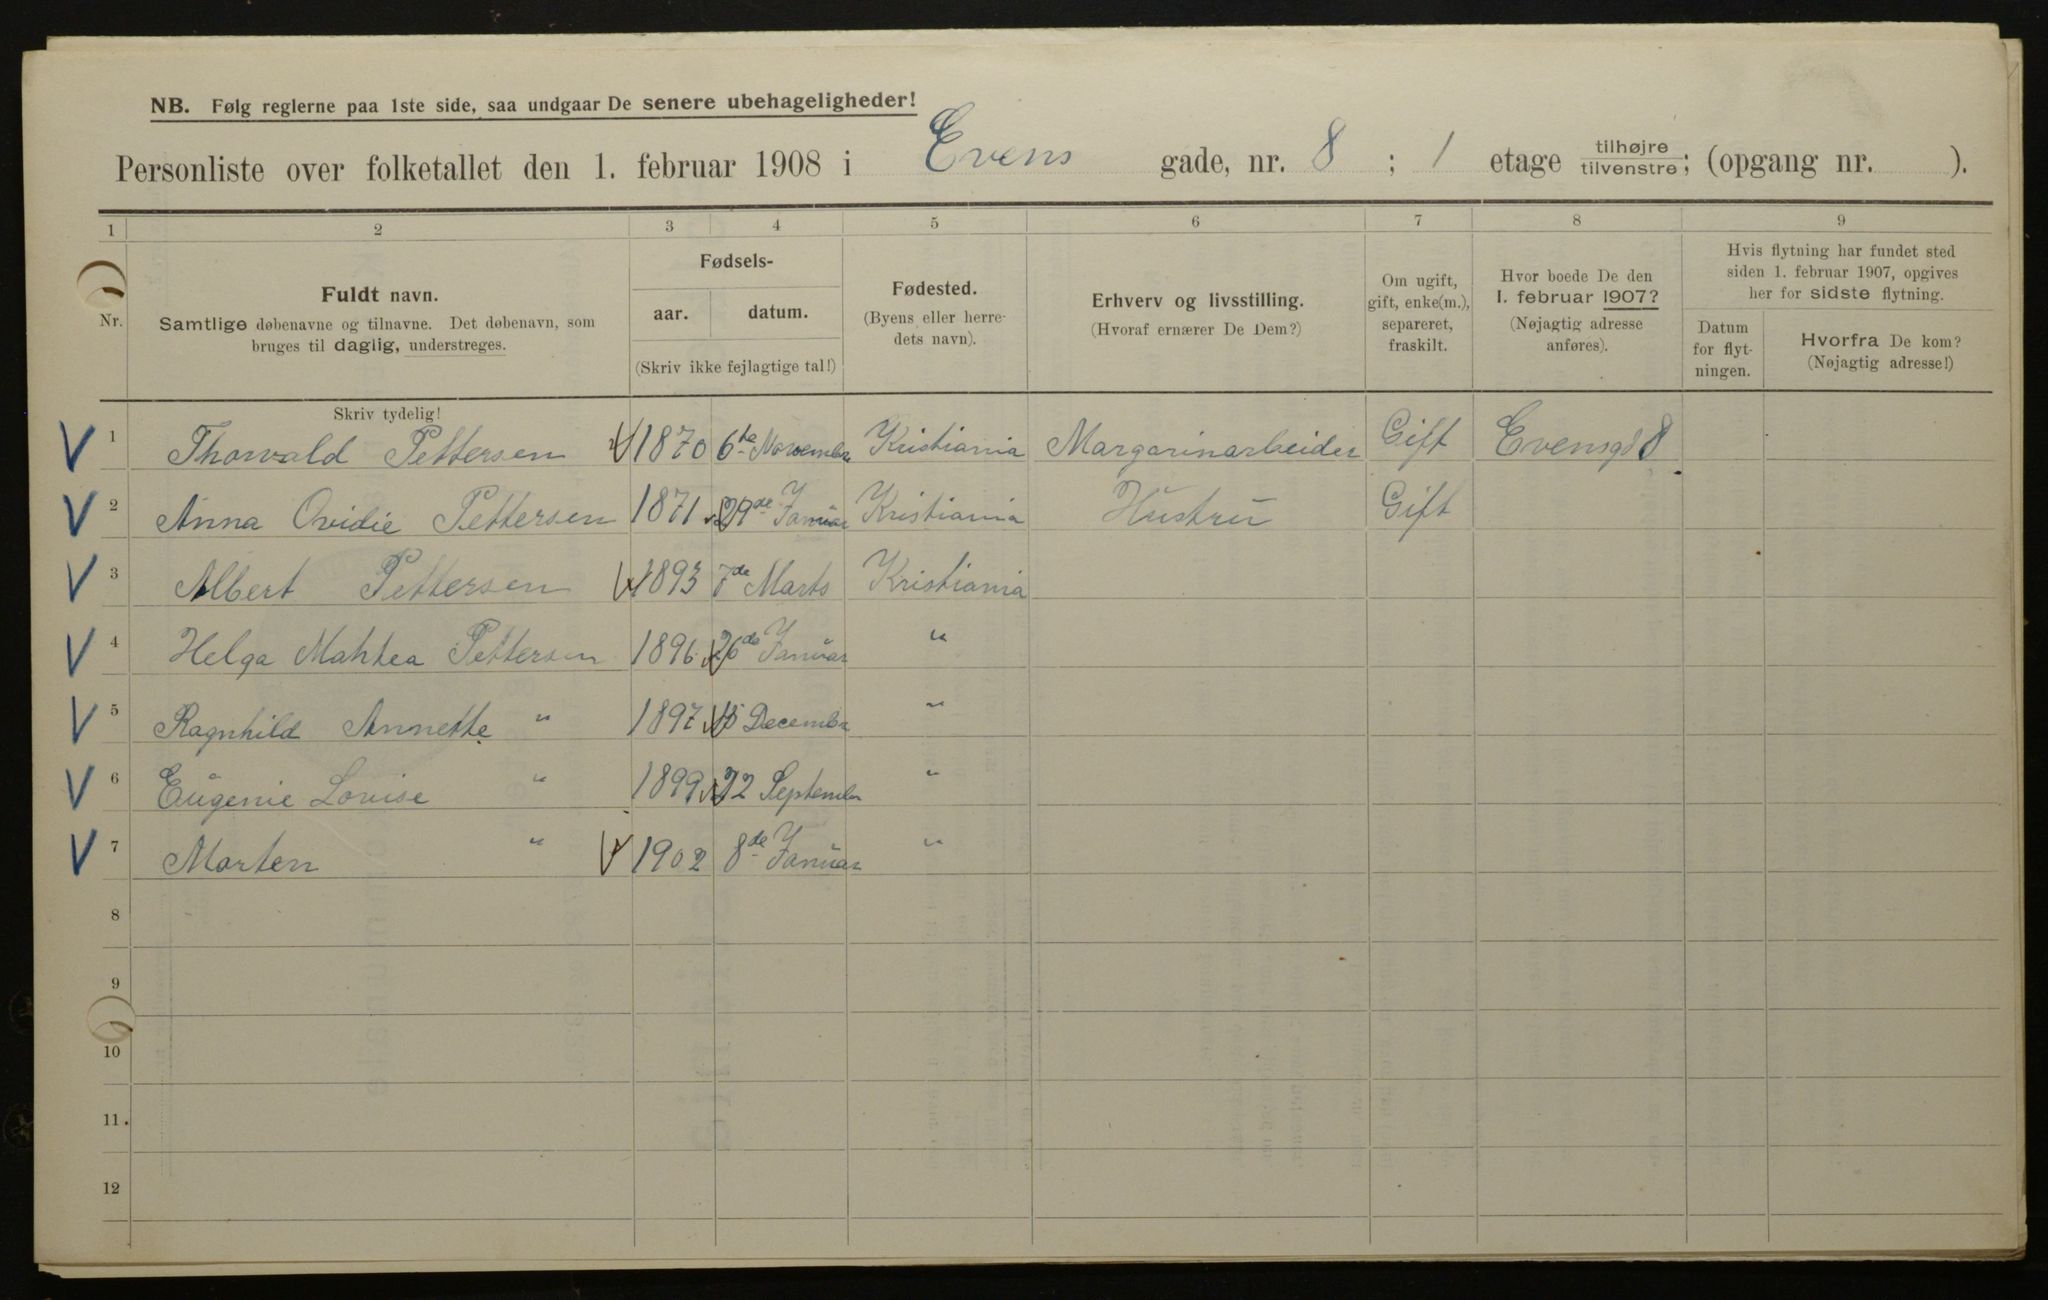 NB. Følg reglerne paa 1ste side, saa undgaar De senere ubehageligheder!
Personliste over folketallet den 1. februar 1908 i Evens gade, nr. 8 ; 1 etage tilhøjre/tilvenstre; (opgang nr. ).
1 2 3 4 5 6 7 8 9
Nr.
Fuldt navn.
Samtlige døbenavne og tilnavne. Det døbenavn, som
bruges til daglig, understreges.
Fødsels-
aar. datum.
(Skriv ikke fejlagtige tal!)
Fødested.
(Byens eller herre-
dets navn).
Erhverv og livsstilling.
(Hvoraf ernærer De Dem?)
Om ugift,
gift, enke(m.),
separeret,
fraskilt.
Hvor boede De den
1. februar 1907?
(Nøjagtig adresse
anføres).
Hvis flytning har fundet sted
siden 1. februar 1907, opgives
her for sidste flytning.
Datum
for flyt-
ningen.
Hvorfra De kom?
(Nøjagtig adresse!)
Skriv tydelig!
1 Thorvald Pettersen 1870 6te November Kristiania Margarinarbeider Gift Evensgd 8
2 Anna Ovidie Pettersen 1871 29de Januar Kristiania Hustru Gift
3 Albert Pettersen 1893 7de Marts Kristiania
4 Helga Mahtea Pettersen 1896 26de Januar "
5 Ragnhild Annette " 1897 15 December "
6 Eugenie Lovise " 1899 22 September "
7 Morten " 1902 8de Januar "
8
9
10
11
12